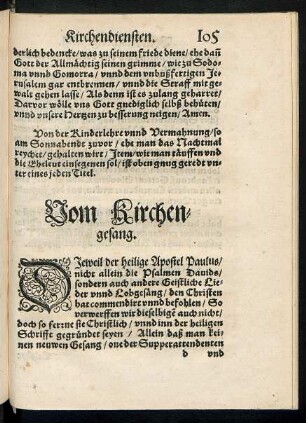 Kirchendiensten. 105
derlich bedencke/was zu seinem friede diene/ehe dañ
Gott der Allmächtig seinen grimme/wie zu Sodo-
ma vnnd Gomorra/vnnd dem vnbußfertigen Je-
rusalem gar entbrennen/vnnd die Straff mit ge-
walt gehen lasse/Als denn ist es zulang geharret/
Darvor wölle vns Gott gnediglich selbst behüten/
vnnd vnsere Hertzen zu besserung neigen/Amen.
Von der Kinderlehre vnnd Vermahnung/so
am Sonnabende zuvor/ehe man das Nachtmal
reychet/gehalten wirt/Item/wie man täuffen vnd
die Eheleut einsegenen sol/ist oben gnug geredt vn-
ter eines jeden Titel.
Vom Kirchen-
gesang.
DJeweil der heilige Apostel Paulus/
nicht allein die Psalmen Dauids/
sondern auch andere Geistliche Lie-
der vnnd Lobgesäng/den Christen
hat commendirt vnnd befohlen/So
verwerffen wir dieselbige auch nicht/
doch so ferrne sie Christlich/vnnd inn der heiligen
Schrifft gegründet seyen/Allein daß man kei-
nen neuwen Gesang/one der Supperattendenten
d vnd